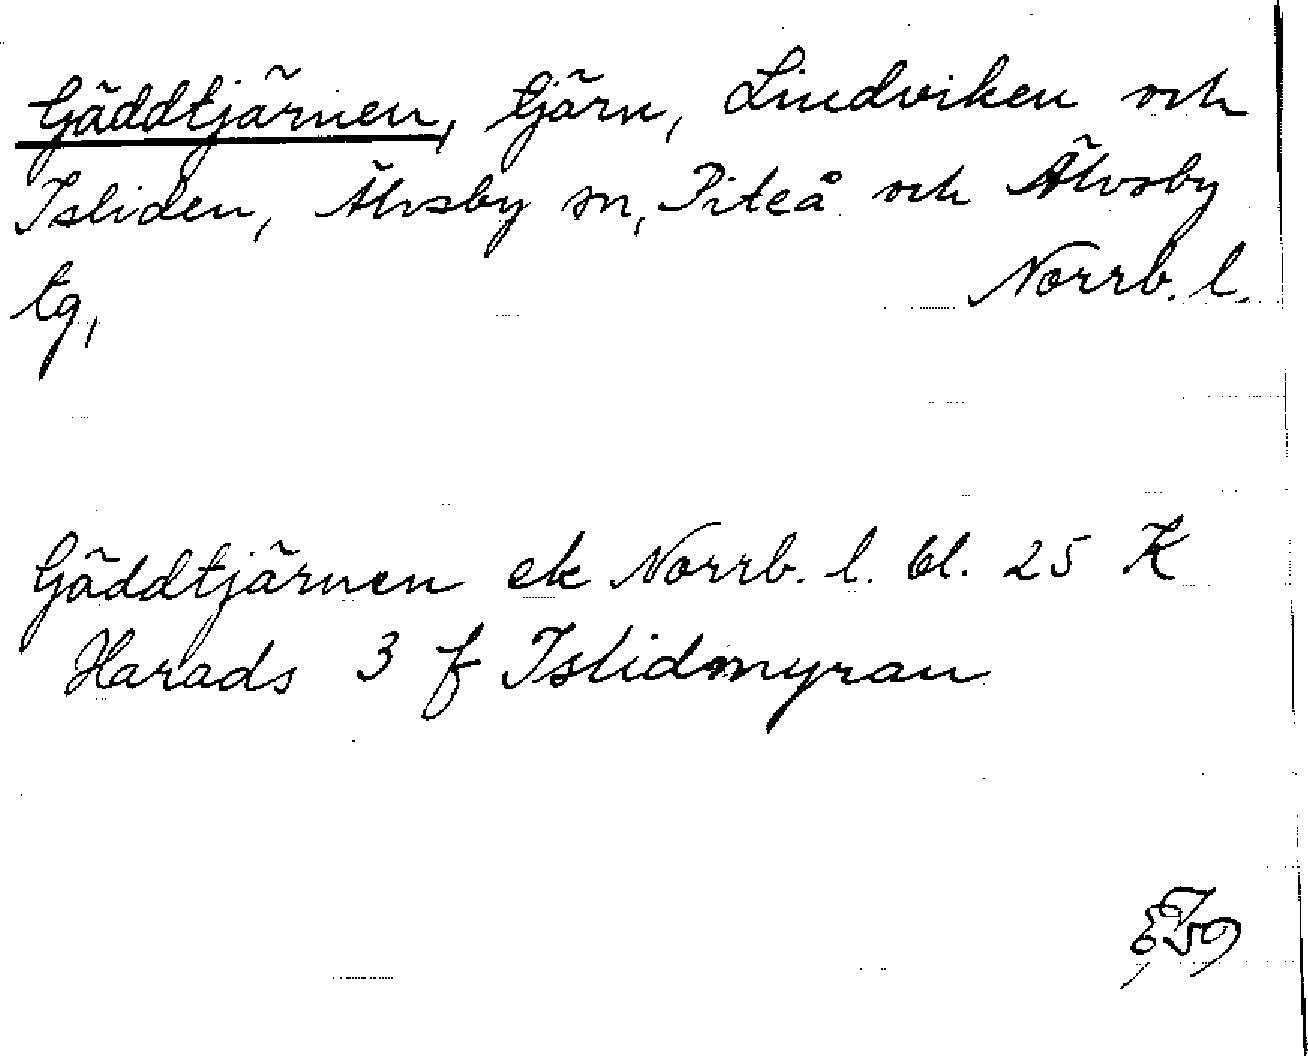 Gäddtjärnen, tjärn, Lindviken och
Isliden, Älvsby sn, Piteå och Älvsby
tg,
Norrb. l.
Gäddtjärnen ek Norrb. l. bl. 25 K
Harads 3 f Islidmyran